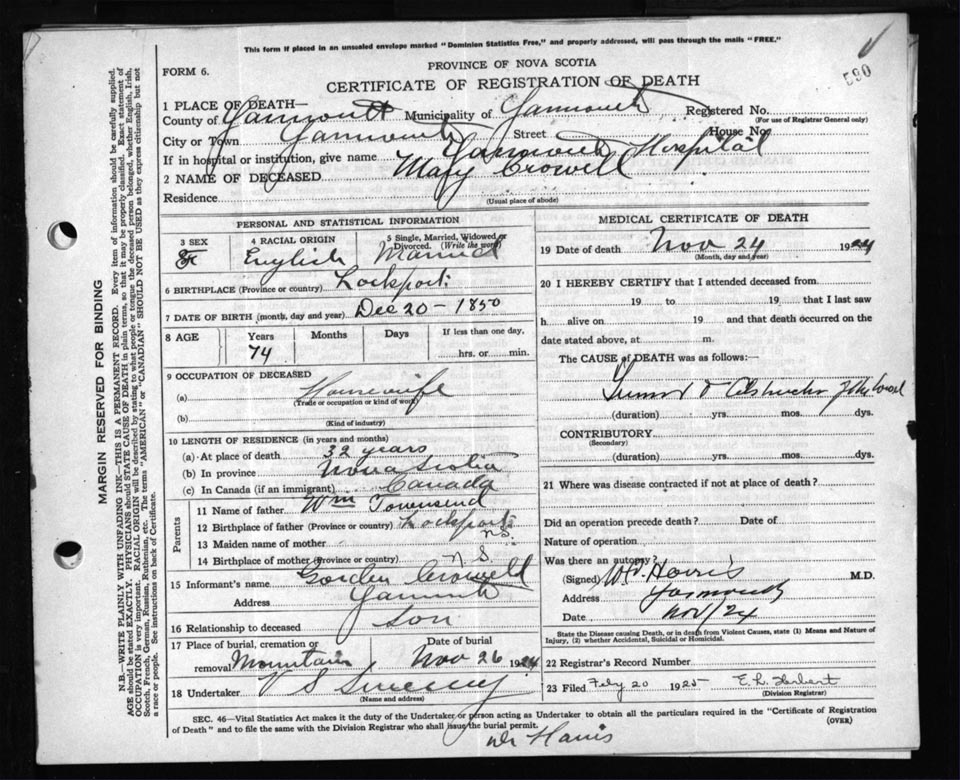 This form if placed in an unsealed envelope marked "Dominion Statistics Free," and properly addressed, will pass through the mails "FREE."
590
PROVINCE OF NOVA SCOTIA
FORM 6.
CERTIFICATE OF REGISTRATION OF DEATH
1 PLACE OF DEATH—
County of Yarmouth Municipality of Yarmouth Registered No.
(For use of Registrar General only)
City or Town Yarmouth Street House No.
If in hospital or institution, give name Yarmouth Hospital
2 NAME OF DECEASED Mary Crowell
Residence
(Usual place of abode)
PERSONAL AND STATISTICAL INFORMATION
3 SEX F
4 RACIAL ORIGIN English
5 Single, Married, Widowed or Divorced. (Write the word) Married
6 BIRTHPLACE (Province or country) Lockport
7 DATE OF BIRTH (month, day and year) Dec 20 - 1850
8 AGE Years Months Days If less than one day,
74 hrs. or min.
9 OCCUPATION OF DECEASED
(a) Housewife
(Trade or occupation or kind of work)
(b)
(Kind of industry)
10 LENGTH OF RESIDENCE (in years and months)
(a) At place of death 32 years
(b) In province Nova Scotia
(c) In Canada (if an immigrant) Canada
Parents
11 Name of father Wm Townsend
12 Birthplace of father (Province or country) Lockport N.S.
13 Maiden name of mother
14 Birthplace of mother (Province or country) N S
15 Informant's name Gorden Crowell
Address Yarmouth
16 Relationship to deceased son
17 Place of burial, cremation or removal Mountain Date of burial Nov 26 1924
18 Undertaker V S Sweeny
(Name and address)
MEDICAL CERTIFICATE OF DEATH
19 Date of death Nov 24 1924
(Month, day and year)
20 I HEREBY CERTIFY that I attended deceased from
19 to 19 that I last saw
h alive on 19 and that death occurred on the
date stated above, at m.
The CAUSE of DEATH was as follows:
Tumor &
(duration) yrs. mos. dys.
CONTRIBUTORY
(Secondary)
(duration) yrs. mos. dys.
21 Where was disease contracted if not at place of death?
Did an operation precede death? Date of
Nature of operation
Was there an autopsy?
(Signed) Harris M.D.
Address Yarmouth
Date Nov/24
State the Disease causing Death, or in death from Violent Causes, state (1) Means and Nature of
Injury, (2) whether Accidental, Suicidal or Homicidal.
22 Registrar's Record Number
23 Filed Feby 20 1925 E. L. Herbert
(Division Registrar)
SEC. 46—Vital Statistics Act makes it the duty of the Undertaker or person acting as Undertaker to obtain all the particulars required in the "Certificate of Registration
of Death" and to file the same with the Division Registrar who shall issue the burial permit.
(OVER)
Dr Harris
MARGIN RESERVED FOR BINDING
N.B.—WRITE PLAINLY WITH UNFADING INK—THIS IS A PERMANENT RECORD. Every item of information should be carefully supplied.
AGE should be stated EXACTLY. PHYSICIANS should STATE CAUSE OF DEATH in plain terms, so that it may be properly classified. Exact statement of
OCCUPATION is very important. RACIAL ORIGIN will be described by stating to what people or tongue the deceased person belonged, whether English, Irish,
Scotch, French, German, Russian, Ruthenian, etc. The terms "AMERICAN" or "CANADIAN" SHOULD NOT BE USED as they express citizenship but not
a race or people. See instructions on back of Certificate.